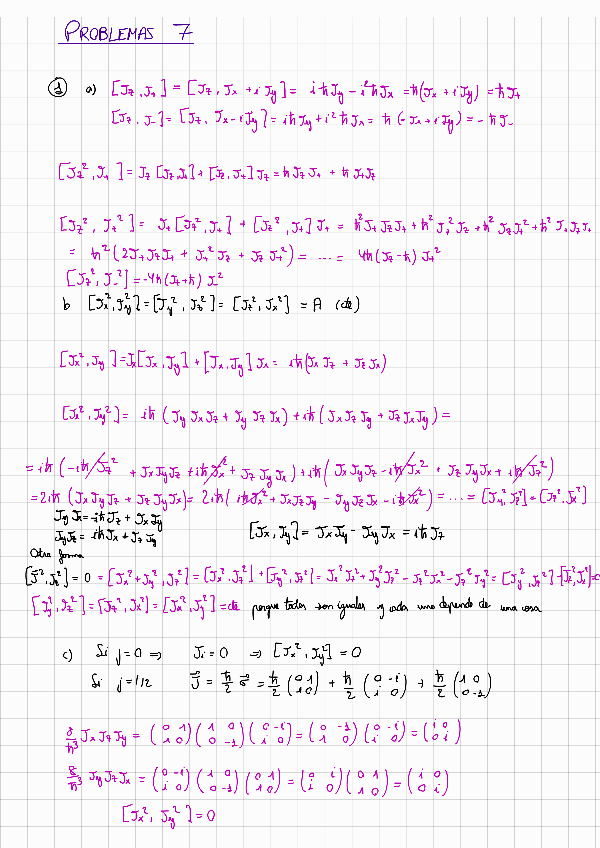 PROBLEMAS 7
1 a) [Jz, J+] = [Jz, Jx + iJy] = iℏJy - i²ℏJx = ℏ(Jx + iJy) = ℏJ+
[Jz, J-] = [Jz, Jx - iJy] = iℏJy + i²ℏJx = ℏ(-Jx + iJy) = -ℏJ-
[Jz², J+] = Jz[Jz, J+] + [Jz, J+]Jz = ℏJzJ+ + ℏJ+Jz
[Jz², J+²] = J+[Jz², J+] + [Jz², J+]J+ = ℏ²J+JzJ+ + ℏ²J+²Jz + ℏ²JzJ+² + ℏ²J+JzJ+
= ℏ²(2J+JzJ+ + J+²Jz + JzJ+²) = ... = 4ℏ(Jz-ℏ)J+²
[Jz², J-²] = -4ℏ(Jz+ℏ)J-²
b [Jx², Jy²] = [Jy², Jz²] = [Jz², Jx²] = A (cte)
[Jx², Jy] = Jx[Jx, Jy] + [Jx, Jy]Jx = iℏ(JxJz + JzJx)
[Jx², Jy²] = iℏ(JyJxJz + JyJzJx) + iℏ(JxJzJy + JzJxJy) =
= iℏ(-iℏJz² + JxJyJz + iℏJx² + JzJyJx) + iℏ(JxJyJz - iℏJx² + JzJyJx + iℏJz²)
= 2iℏ(JxJyJz + JzJyJx) = 2iℏ(iℏJx² + JxJzJy - JyJzJx - iℏJx²) = ... = [Jy², Jz²] = [Jz², Jx²]
JyJx = -iℏJz + JxJy
JyJz = iℏJx + JzJy [Jx, Jy] = JxJy - JyJx = iℏJz
Otra forma
[J², Jz²] = 0 = [Jx² + Jy², Jz²] = [Jx², Jz²] + [Jy², Jz²] = Jx²Jz² + Jy²Jz² - Jz²Jx² - Jz²Jy² = [Jy², Jz²] - [Jz², Jx²] = 0
[Jy², Jz²] = [Jz², Jx²] = [Jx², Jy²] = cte porque todos son iguales y cada uno depende de una cosa
c) Si j=0 ⇒ Ji = 0 ⇒ [Jx², Jy²] = 0
Si j=1/2 J⃗ = ℏ/2 σ⃗ = ℏ/2 (0 1; 1 0) + ℏ/2 (0 -i; i 0) + ℏ/2 (1 0; 0 -1)
8/ℏ³ JxJzJy = (0 1; 1 0)(1 0; 0 -1)(0 -i; i 0) = (0 -1; 1 0)(0 -i; i 0) = (i 0; 0 i)
8/ℏ³ JyJzJx = (0 -i; i 0)(1 0; 0 -1)(0 1; 1 0) = (0 i; i 0)(0 1; 1 0) = (i 0; 0 i)
[Jx², Jy²] = 0